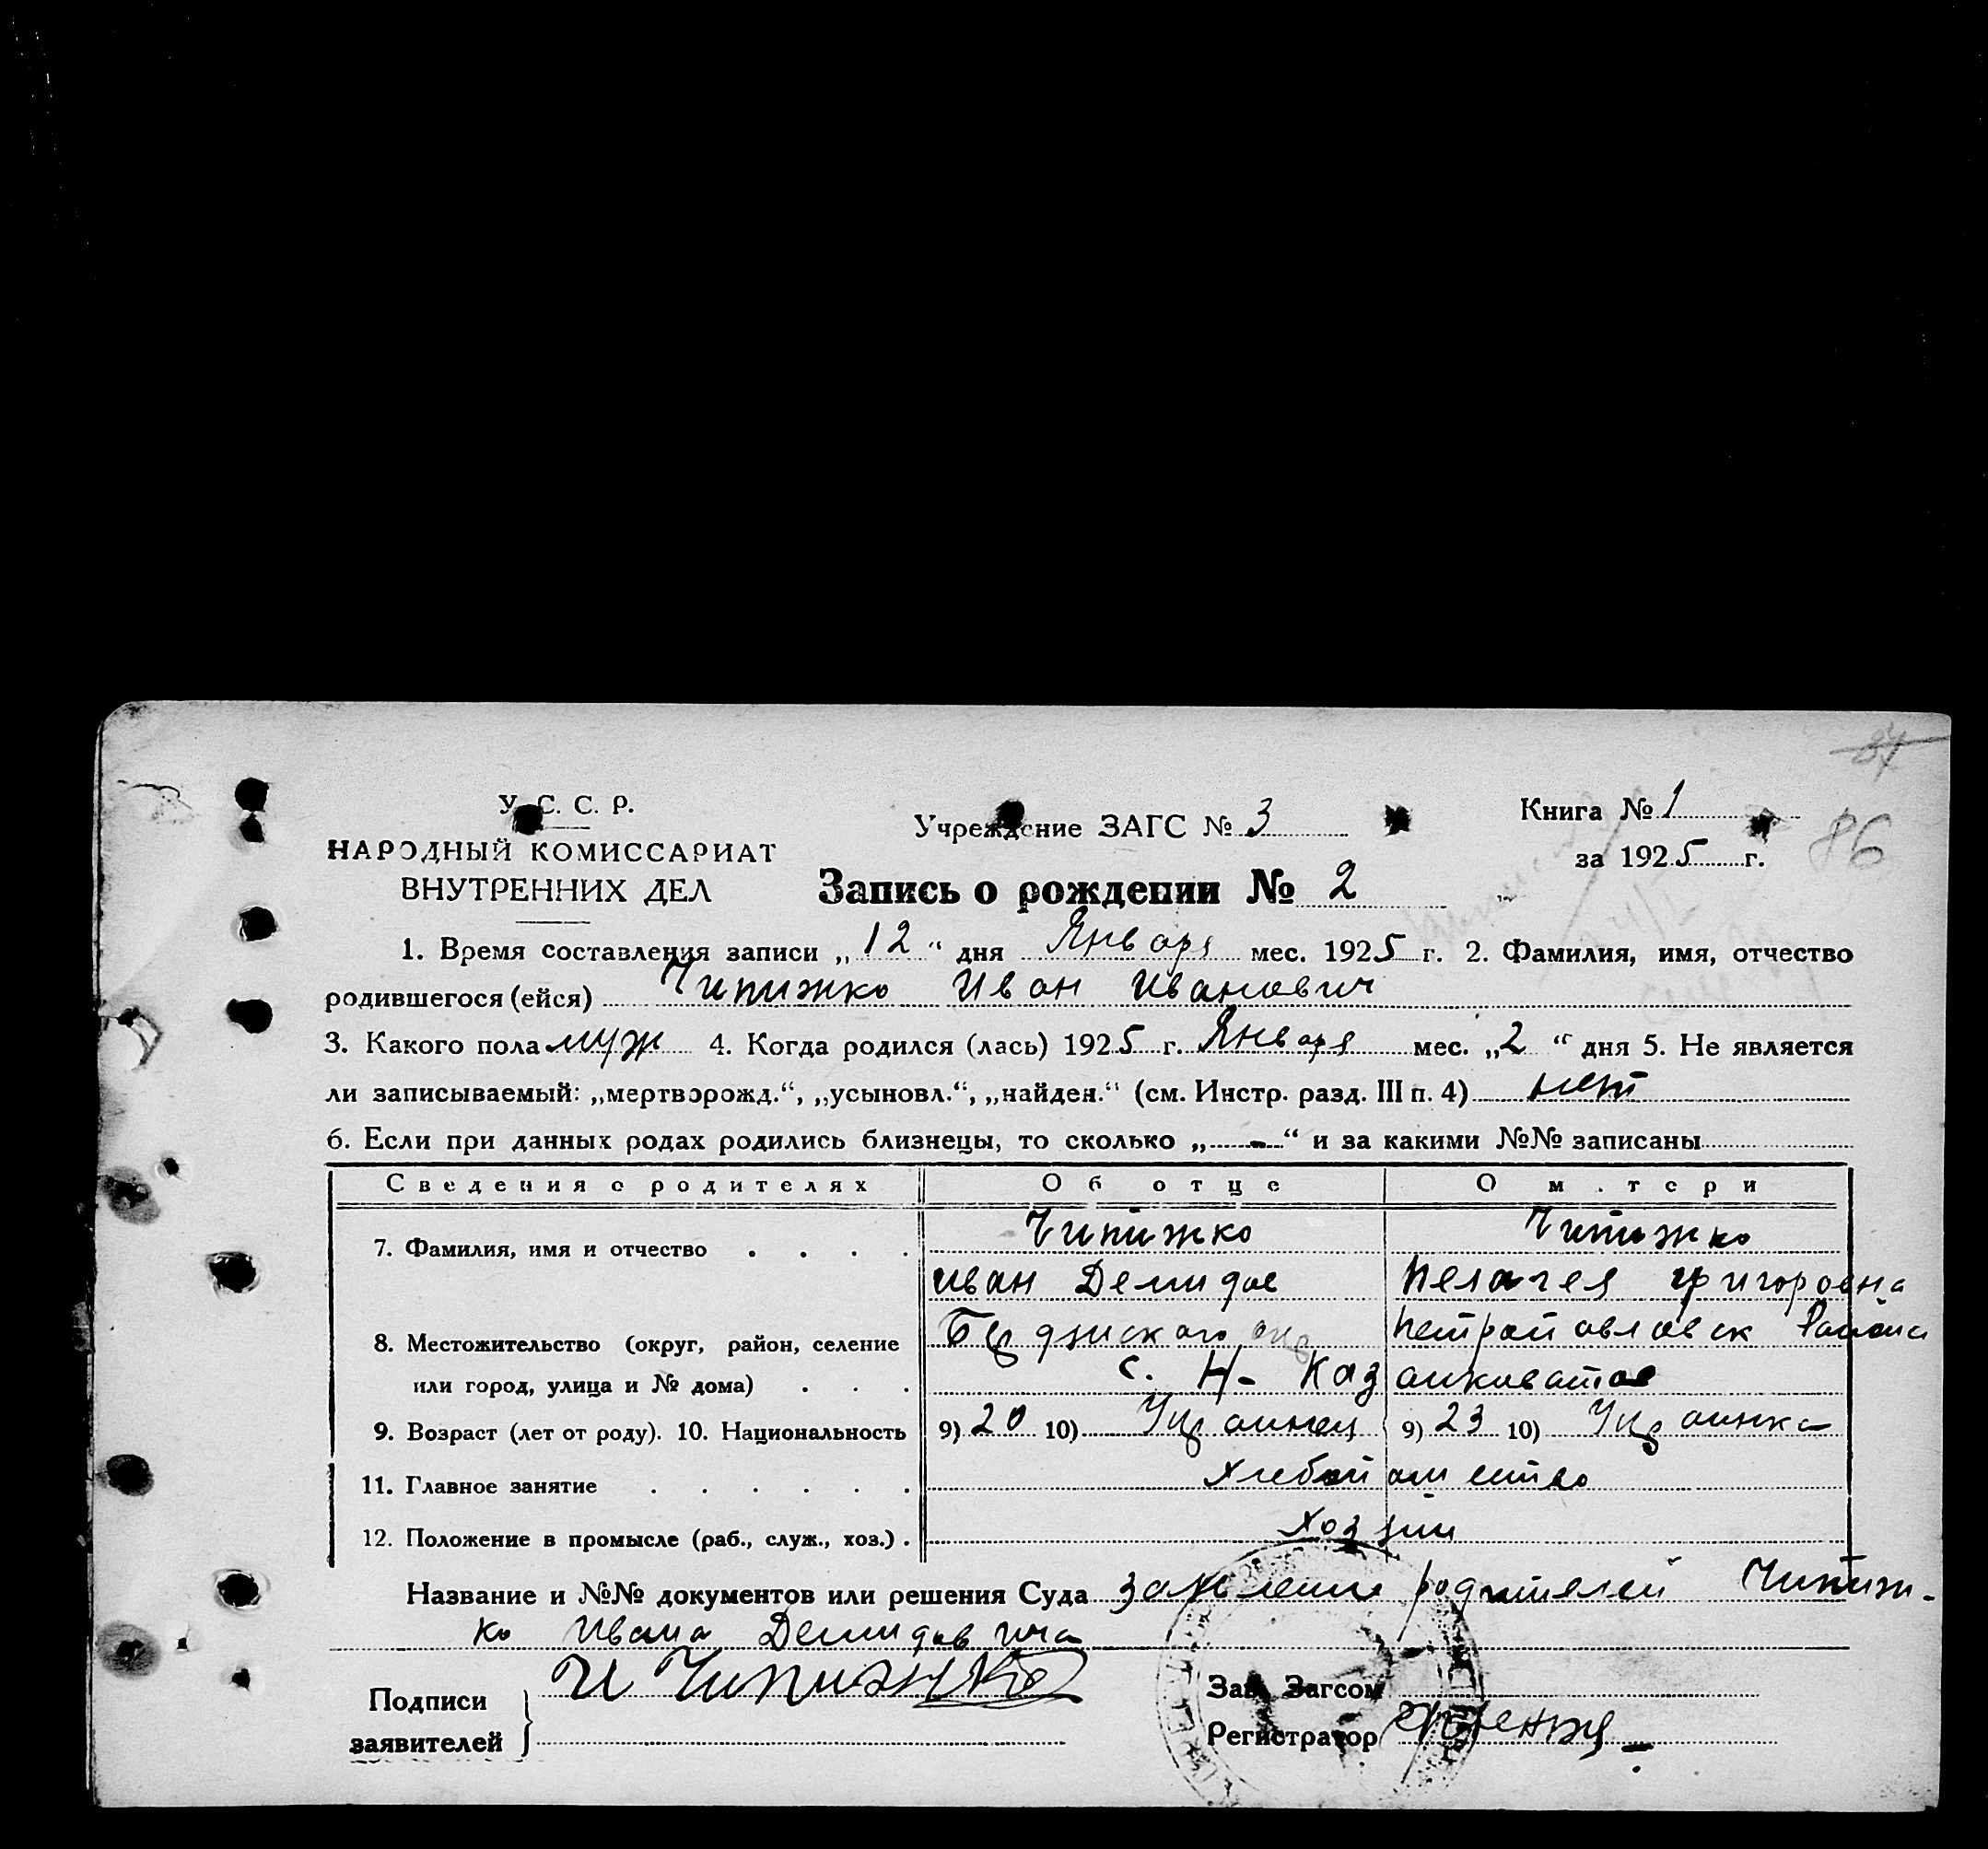 87
У. С. С. Р.
Учреждение ЗАГС № 3
Книга № 1
НАРОДНЫЙ КОМИССАРИАТ
за 1925 г.
86
ВНУТРЕННИХ ДЕЛ
Запись о рождении № 2
1. Время составления записи „12“ дня Января мес. 1925 г. 2. Фамилия, имя, отчество
родившегося (ейся) Чипижко Иван Иванович
3. Какого пола муж 4. Когда родился (лась) 1925 г. Января мес. „2“ дня 5. Не является
ли записываемый: „мертворожд.“, „усыновл.“, „найден.“ (см. Инстр. разд. III п. 4) нет
6. Если при данных родах родились близнецы, то сколько „-“ и за какими №№ записаны
Сведения о родителях Об отце О м.тери
7. Фамилия, имя и отчество . . . . Чипижко Чипижко
Иван Демидов Пелагея Григоровна
8. Местожительство (округ, район, селение
или город, улица и № дома) . . . с. Н- Казанковатое
9. Возраст (лет от роду). 10. Национальность 9) 20 10) Украинец 9) 23 10) Украинка
11. Главное занятие . . . . . . Хлебопашество
12. Положение в промысле (раб., служ., хоз.) . Хозяин
Название и №№ документов или решения Суда родителей Чипиж-
ко Ивана Демидовича
И Чипижко
Подписи
заявителей
Зав. Загсом
Регистратор